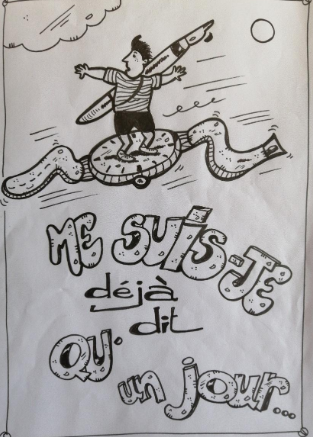 ME SUIS-JE
déjà
dit
QU'
un jour...